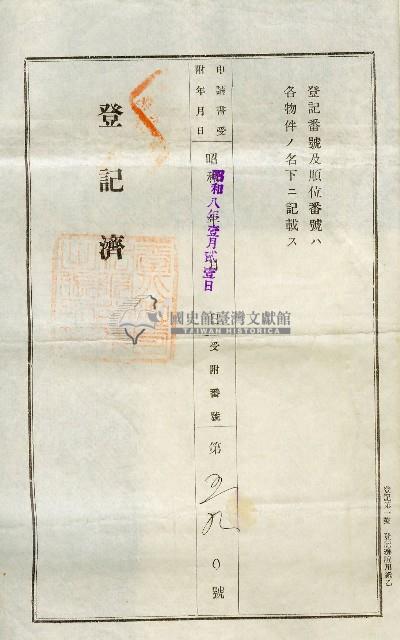 登記番號及順位番號ハ
各物件ノ名下ニ記載ス
申請書受附年月日
昭和
昭和八年壹月貳壹日
日
受附番號
第
九〇號
登記濟
國史館臺灣文獻館
TAIWAN HISTORICA